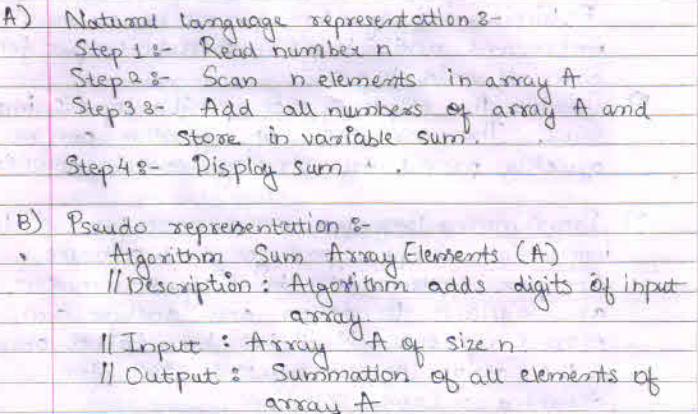 A) Natural language representation :-
Step 1 :- Read number n
Step 2 :- Scan n elements in array A
Step 3 :- Add all numbers of array A and
store in variable sum.
Step 4 :- Display sum.
B) Pseudo representation :-
Algorithm Sum Array Elements (A)
// Description : Algorithm adds digits of input
array
// Input : Array A of size n
// Output : Summation of all elements of
array A